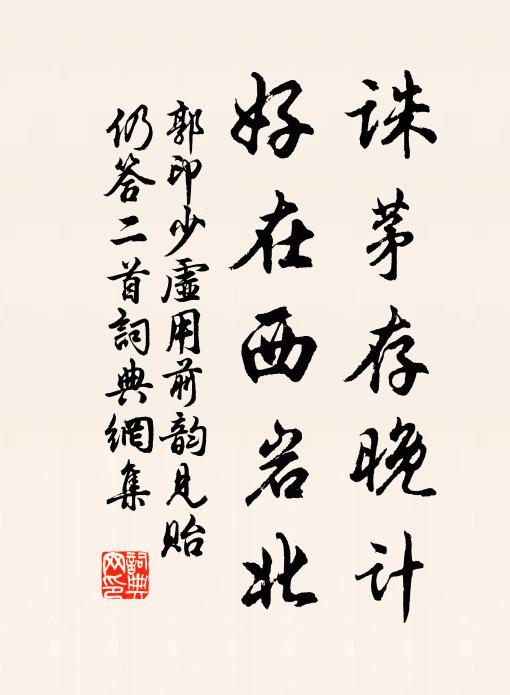 诛茅存晚计
好在西岩北
郭印少虛用前韵見貽
仍答二首詞典網集
詞典网印